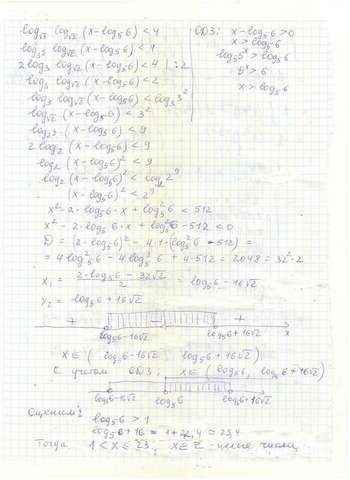 log√3 log√2 (x - log₅6) < 4
ОДЗ: x - log₅6 > 0
x > log₅6
log₅5ˣ > log₅6
5ˣ > 6
x > log₅6
2 log₃ log√2 (x - log₅6) < 4 | :2
log₃ log√2 (x - log₅6) < 2
log₃ log√2 (x - log₅6) < log₃3²
log√2 (x - log₅6) < 3²
(x - log₅6) < 9
2 log₂ (x - log₅6) < 9
log₂ (x - log₅6)² < 9
log₂ (x - log₅6)² < log₂2⁹
(x - log₅6)² < 2⁹
x² - 2·log₅6·x + log₅²6 < 512
x² - 2·log₅6·x + log₅²6 - 512 < 0
D = (2·log₅6)² - 4·1·(log₅²6 - 512) =
= 4log₅²6 - 4log₅²6 + 4·512 = 2048 = 32²·2
x₁ = (2·log₅6 - 32√2)/2 = log₅6 - 16√2
x₂ = log₅6 + 16√2
+ − +
log₅6-16√2 log₅6+16√2 x
x ∈ (log₅6-16√2 log₅6+16√2)
С учетом ОДЗ: x ∈ (log₅6, log₅6+16√2)
log₅6-16√2 log₅6 log₅6+16√2
Оценим:
log₅6 > 1
= 1 + 22,4 = 23,4
Тогда 1 < x ≤ 23, x ∈ Z - целые числа